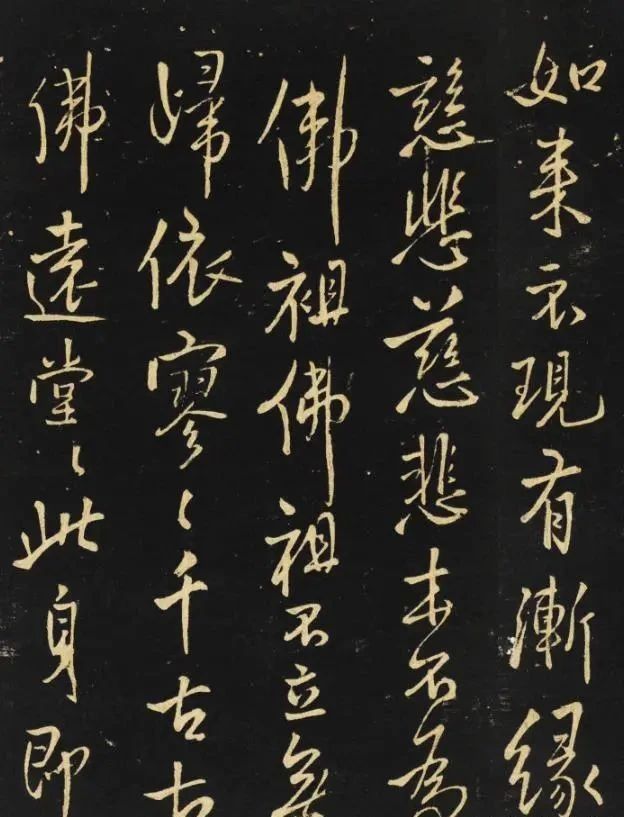 如來示現有漸緣
慈悲慈悲本不為
佛祖佛祖不立
歸依寥〻千古古
佛遠堂〻此身即